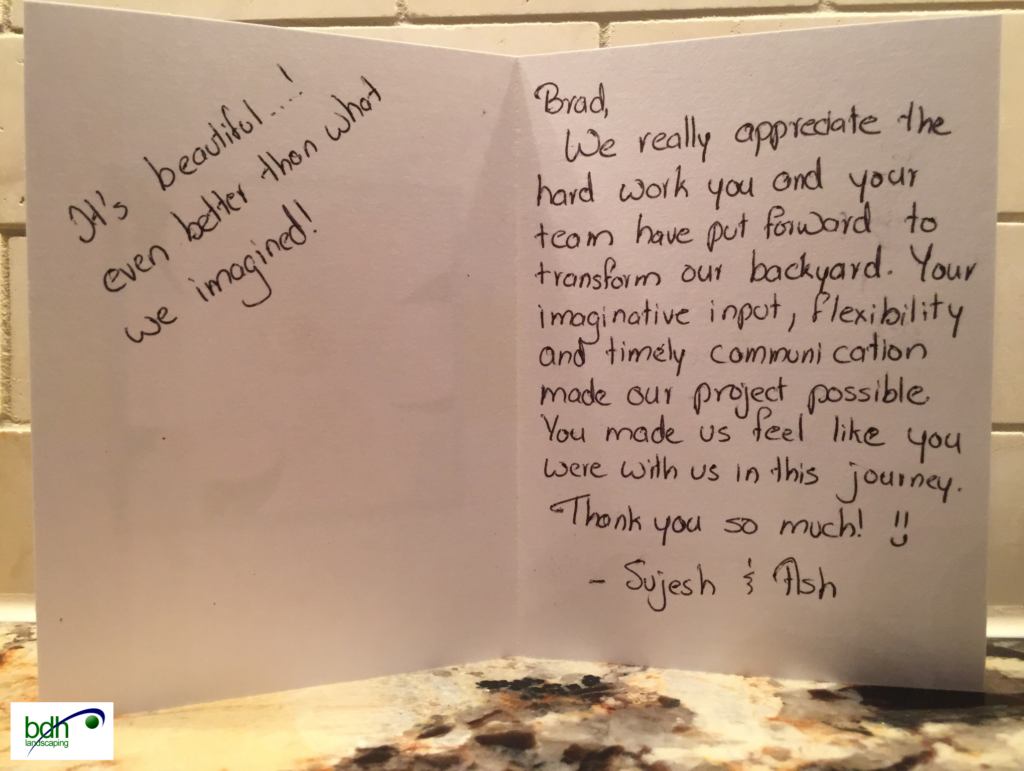 It's beautiful....!
even better than what
we imagined!
Brad,
We really appreciate the
hard work you and your
team have put forward to
transform our backyard. Your
imaginative input, flexibility
and timely communication
made our project possible.
You made us feel like you
were with us in this journey.
Thank you so much! !!
- Sujesh & Ash
bdh
landscaping